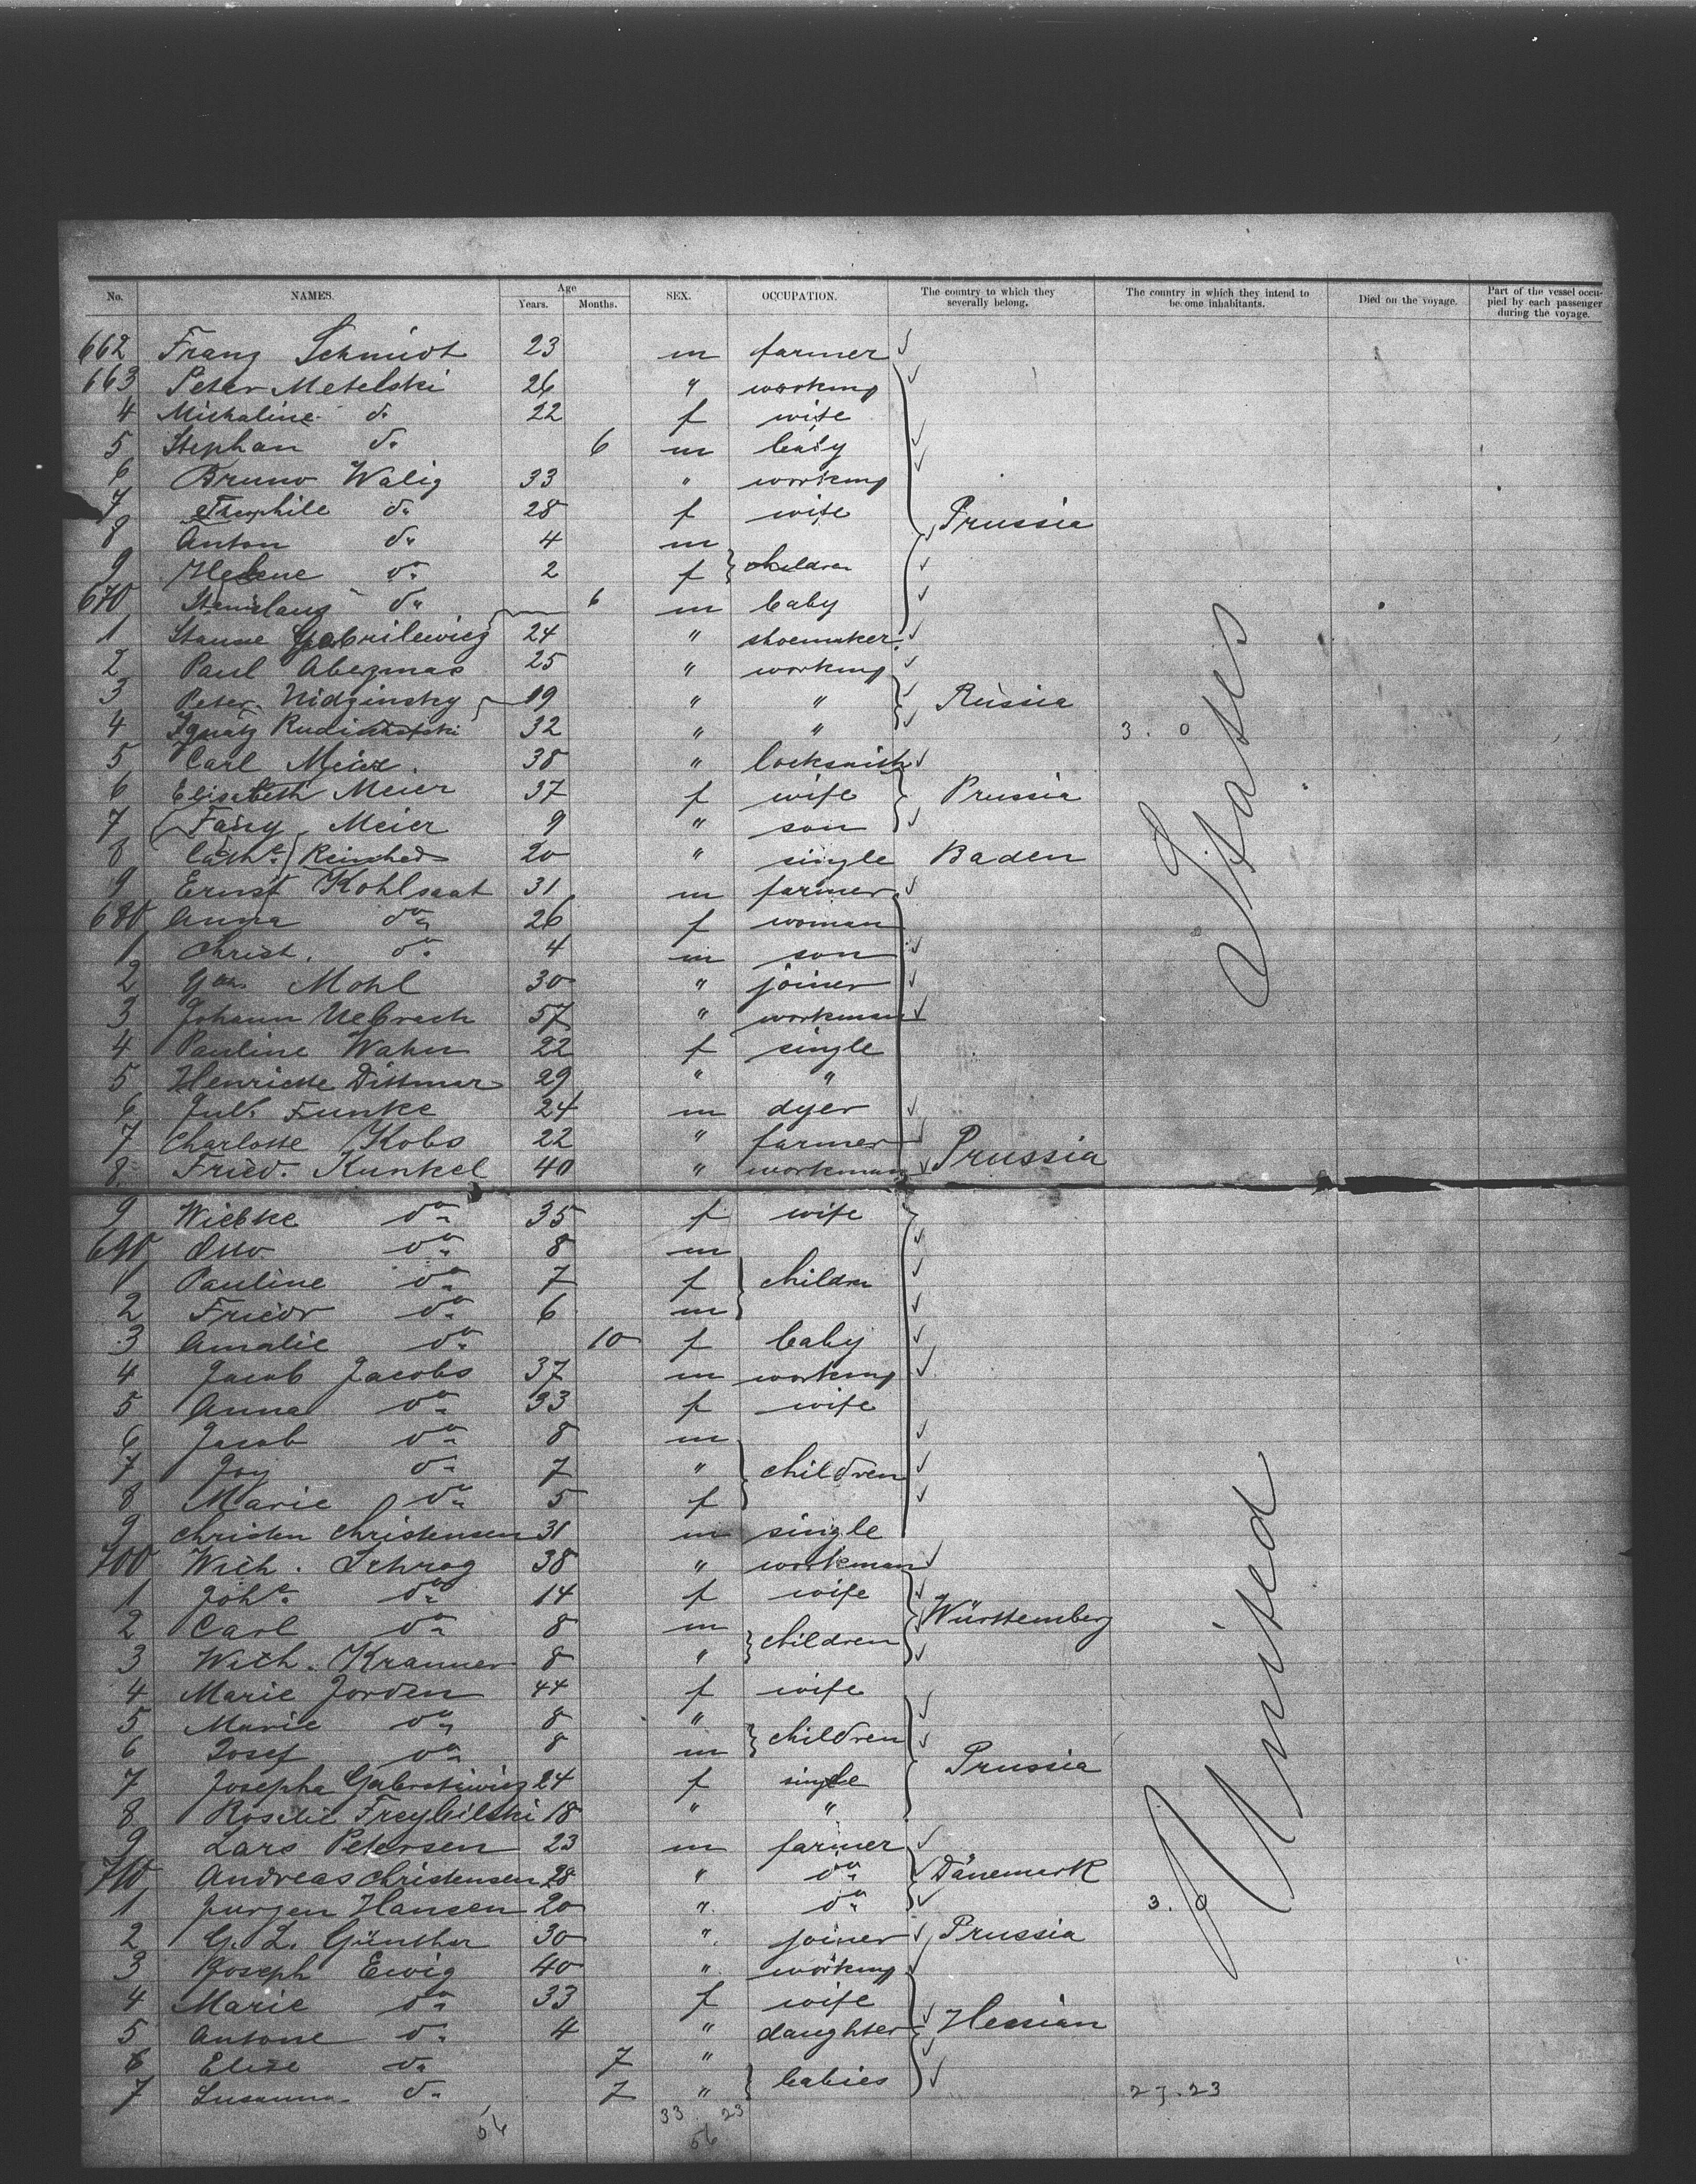 No. NAMES. Age Years. Months. SEX. OCCUPATION. The country to which they severally belong. The country in which they intend to become inhabitants. Died on the voyage. Part of the vessel occupied by each passenger during the voyage.
662 Franz Schmidt 23 m farmer
663 Peter Metelski 26 " working
4 Michaline do 22 f wife
5 Stephan do 6 m baby
6 Bruno Walig 33 " working
7 Theophile do 28 f wife Prussia
8 Anton do 4 m
9 Helene do 2 f children
670 Stanislaus do 6 m baby
1 24 " shoemaker
2 Paul 25 " working
3 Peter Nidzinsky 19 " " Russia
4 Ignatz 32 " " 3. 0
5 Carl Meier 38 " locksmith
6 Elisabeth Meier 37 f wife Prussia
7 Fany Meier 9 " son
8 Cathe. 20 " single Baden
9 Ernst Kohlsaat 31 m farmer
680 Anna do 26 f woman
1 Christ. do 4 m son
2 Mohl 30 " joiner
3 Johann 57 " workman
4 Pauline Wahn 22 f single
5 Henriette Dittmer 29 " "
6 Jul. Funke 24 m dyer
7 Charlotte Kobs 22 " farmer
8 Fried. Kunkel 40 " workman Prussia
9 Wiebke do 35 f wife
690 Otto do 8 m
1 Pauline do 7 f children
2 Friedr do 6 m
3 Amalie do 10 f baby
4 Jacob Jacobs 37 m working
5 Anna do 33 f wife
6 Jacob do 8 m
7 Joy do 7 " children
8 Marie do 5 f
9 Christen Christensen 31 m single
700 Wilh. Schrag 38 " workman
1 Johe. do 14 f wife
2 Carl do 8 m children Württemberg
3 Wilh. Kranner 8 "
4 Marie Jorden 44 f wife
5 Marie do 8 " children
6 Josef do 8 m
7 Josepha 24 f single Prussia
8 Rosalie 18 " "
9 Lars Petersen 23 m farmer
710 Andreas Christensen 28 " do Dänemark
1 Jurgen Hansen 20 " do 3. 0
2 G. L. Günther 30 " joiner Prussia
3 Joseph Ewig 40 " working
4 Marie do 33 f wife
5 Antone do 4 " daughter Hessian
6 Elise do 7 "
7 Susanna do 7 " babies 27.23
33 23
56 56
United States